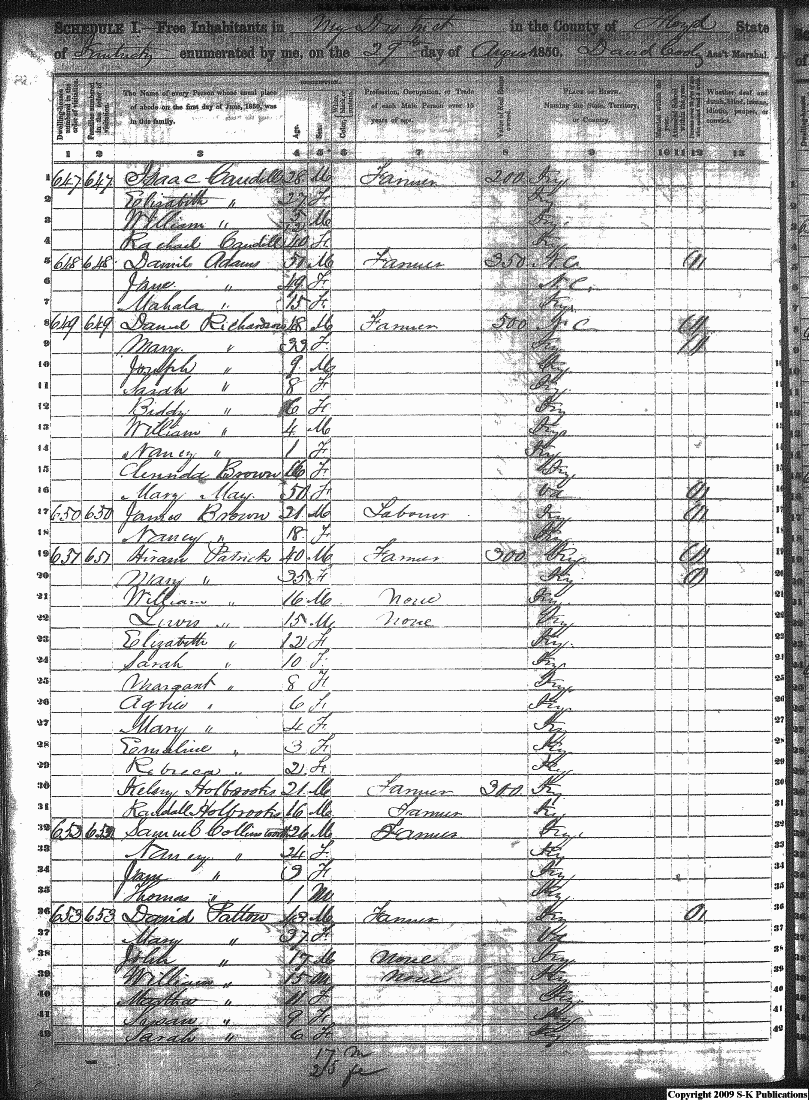 SCHEDULE I.—Free Inhabitants in My District in the County of Floyd State
of Kentucky enumerated by me, on the 29th day of August 1850. David Cooly Ass't Marshal.
The Name of every Person whose usual place of abode on the first day of June, 1850, was in this family.
Age.
Sex.
Profession, Occupation, or Trade of each Male Person over 15 years of age.
Value of Real Estate owned.
PLACE OF BIRTH. Naming the State, Territory, or Country.
Whether deaf and dumb, blind, insane, idiotic, pauper, or convict.
1 2 3 4 5 6 7 8 9 10 11 12 13
1 647 647 Isaac Caudill 28 M Farmer 200 Ky
2 Elizabeth " 27 F Ky
3 William " M Ky
4 Rachael Caudill 40 F K
5 648 648 Daniel Adams 50 M Farmer 350 N.C. (1)
6 Jane " 49 F N.C.
7 Mahala " 15 F Ky
8 649 649 Daniel Richardson 48 M Farmer 500 N.C (1)
9 Mary " 33 F Ky (1)
10 Joseph " 9 M Ky
11 Sarah " 8 F Ky
12 Biddy " 6 F Ky
13 William " 4 M Ky
14 Nancy " 1 F Ky
15 Brown 16 F Ky
16 Mary May 50 F Va (1)
17 650 650 James Brown 21 M Labourer Ky (1)
18 Nancy " 18 F Ky
19 651 651 Hiram Patrick 40 M Farmer 300 Ky (1)
20 Mary " 35 F Ky (1)
21 William " 16 M None Ky
22 Lewis " 15 M None Ky
23 Elizabeth " 12 F Ky
24 Sarah " 10 F Ky
25 Margaret " 8 F Ky
26 Agnis " 6 F Ky
27 Mary " 4 F Ky
28 Emaline " 3 F Ky
29 Rebecca " 2 F Ky
30 Kelsey Holbrooks 21 M Farmer 300 Ky
31 Randall Holbrooks 16 M Farmer Ky
32 652 652 Samuel Collinsworth 26 M Farmer Ky
33 Nancy " 24 F Ky
34 Jane " F Ky
35 Thomas " 1 M Ky
36 653 653 David Patton 49 M Farmer Ky (1)
37 Mary " 37 F Va
38 John " 17 M None Ky
39 William " 15 M None Ky
40 Martha " 11 F Ky
41 Susan " 9 F Ky
42 Sarah " 6 F Ky
17 m
25 fe
Copyright 2009 S-K Publications